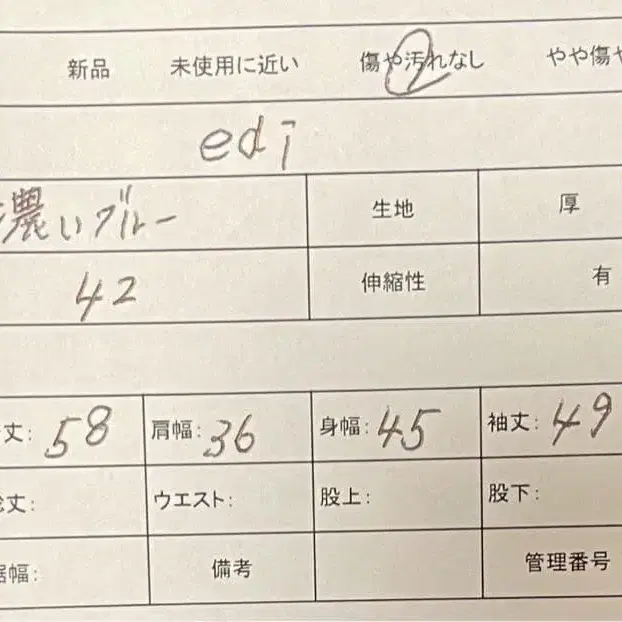 新品 未使用に近い 傷や汚れなし やや傷や
edi
濃いブルー 生地 厚
42 伸縮性 有
丈: 58 肩幅: 36 身幅: 45 袖丈: 49
総丈: ウエスト: 股上: 股下:
裾幅: 備考 管理番号